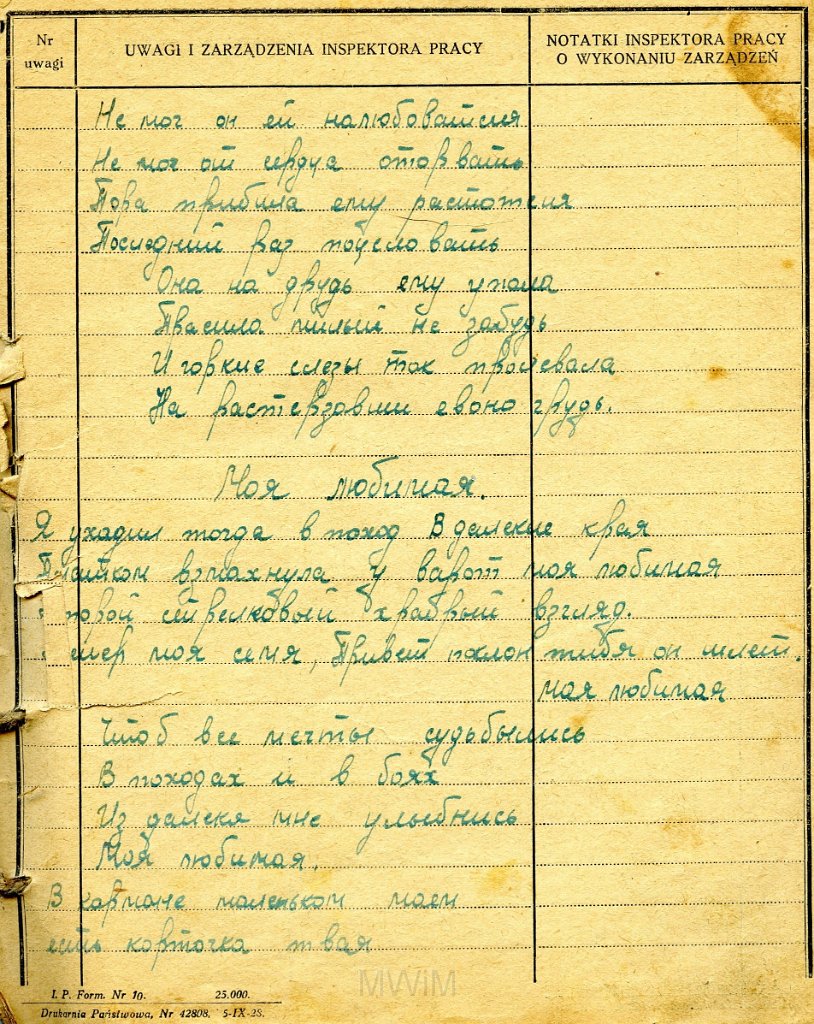 Nr uwagi
UWAGI I ZARZĄDZENIA INSPEKTORA PRACY
NOTATKI INSPEKTORA PRACY
O WYKONANIU ZARZĄDZEŃ
Не мог он ей налюбоватися
Не мог от сердца оторвать
Пора прибила ему растотся
Последний раз поцеловать
Она на друдь ему упала
Прасила милый не забудь
И горкие слезы так проливала
На растерзовши евоно грудь.
Моя любимая.
Я ухадил тогда в поход В далекие края
Платком взмахнула у варот моя любимая
второй стрелковый храбрый взгляд.
моя семя, Привет поклон тибя он шлет.
мая любимая
Чтоб все мечты судьбылись
В походах и в боях
Из далекя мне улыбнись
Моя любимая.
В кормане маленьком маем
есть карточка твая
I. P. Form. Nr 10. 25.000.
Drukarnia Państwowa, Nr 42808. 5-IX-28.
MWiM